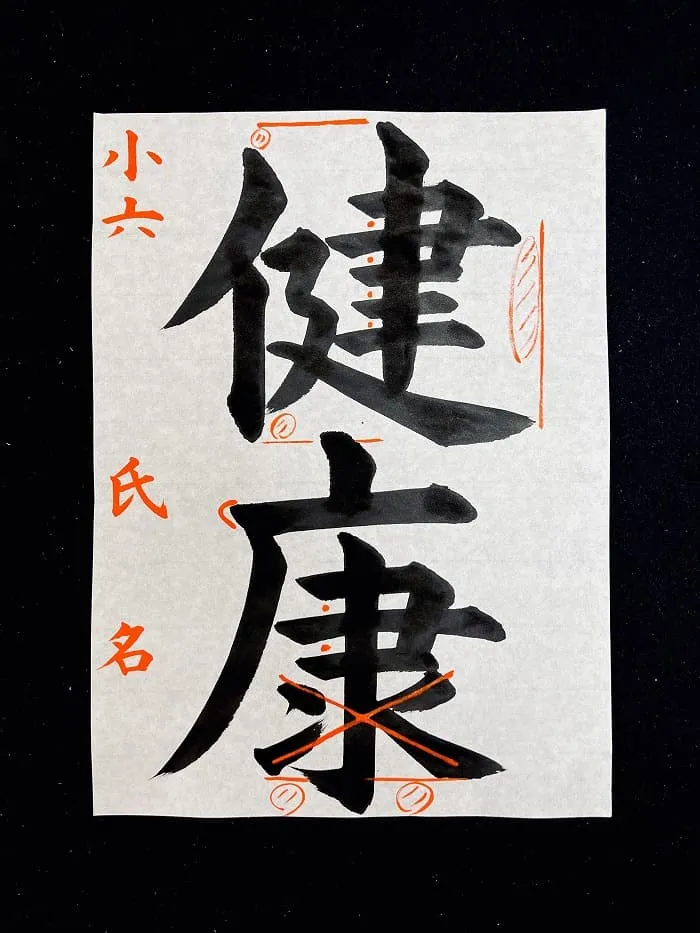 健康
小六
氏名